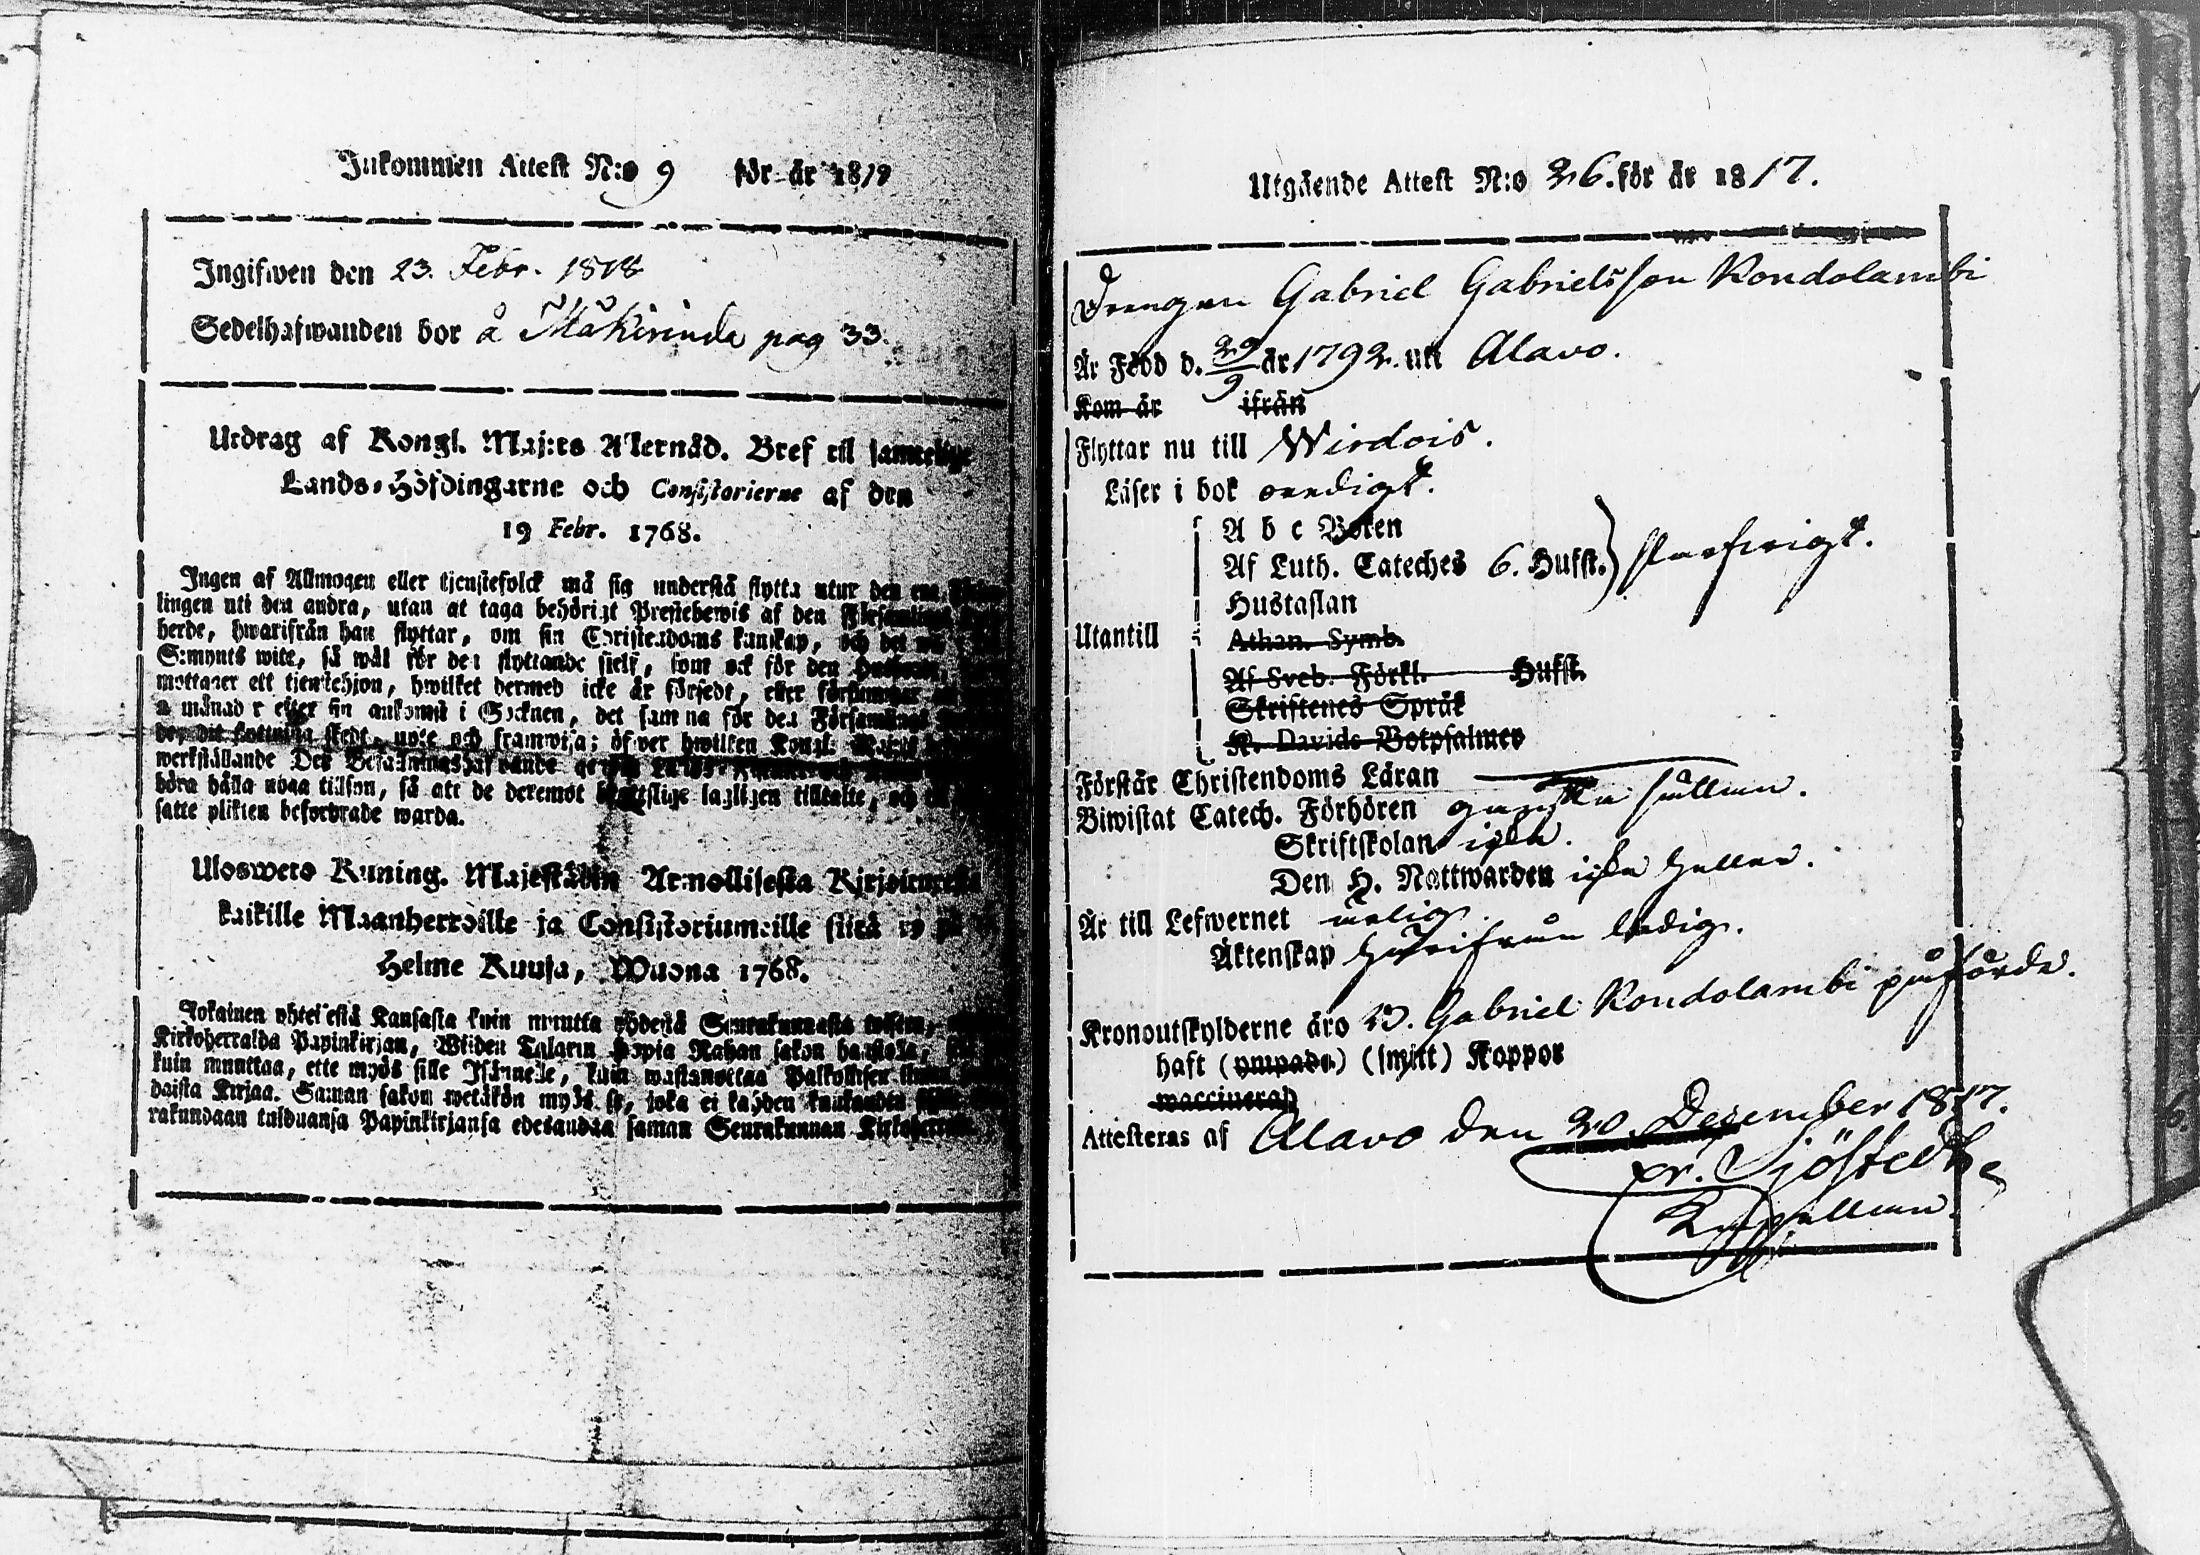 Inkommen Attest N:o 9 för år 1818
Ingifwen den 23. Febr. 1818
Sedelhafwanden bor å Mäkirinda pag 33.
Utdrag af Kongl. Maj:ts Allernåd. Bref til samtelige
Lands-Höfdingarne och Consistorierne af den
19 Febr. 1768.
Ingen af Allmogen eller tjenstefolck må sig understå flytta utur den ena
lingen uti den andra, utan at taga behörigt Prestebewis af den Församlings
herde, hwarifrån han flyttar, om sin Christendoms kunskap, och det
S:mynts wite, så wäl för den flyttande sielf, som ock för den
mottager ett tjenstehjon, hwilket dermed icke är försedt, eller försummar
månader efter sin ankomst i Socknen, det samma för den Församlings
der dit flyttning skedt, upte och framwisa; öfwer hwilken Kongl. Majts
werkställande Des Befallningshafwande genom
böra hålla noga tillsyn, så att de deremot brottslige lagligen tilltalte, och
satte plikten befordrade warda.
Ulosweto Kuning. Majestätin Armollisesta Kirjoituxesta
kaikille Maanherroille ja Consistoriumeille siitä 19 p:
Helme Kuusa, Wuona 1768.
Jokainen yhteisestä Kansasta kuin muutta yhdestä Seurakunnasta toiseen,
Kirkoherralda Papinkirjan, Wiiden Talarin Hopia Rahan sakon haastolla,
kuin muuttaa, ette myös sille Isännelle, kuin wastanottaa Palkollisen ilman
daista Kirjaa. Saman sakon wetäkön myös se, joka ei kahden kuukauden
rakundaan tulduansa Papinkirjansa edesandaa saman Seurakunnan Kirkoherralle
Utgående Attest N:o 26. för år 1817.
Drengen Gabriel Gabrielsson Rondolambi
Är Född d. 29/9 år 1792. uti Alavo.
Kom år ifrån
Flyttar nu till Wirdois.
Läser i bok ovedigt.
A b c Boken
Af Luth. Cateches 6. Hufst. } starfwigt.
Hustaflan
Utantill
Athan. Symb.
Af Sveb. Förkl. Hufst.
Skriftenes Språk
K. Davids Botpsalmer
Förstår Christendoms Läran
Biwistat Catech. Förhören ganska sällan.
Skriftskolan icke.
Den H. Nattwarden icke heller.
Är till Lefwernet ärlig.
Äktenskap härifrån ledig.
Kronoutskylderne äro D. Gabriel Rondolambi påförde.
haft (ympade) (smitt) Koppor
waccinerad
Attesteras af Alavo den 20. December 1817.
pr. Sjöstedt
Kapellan.